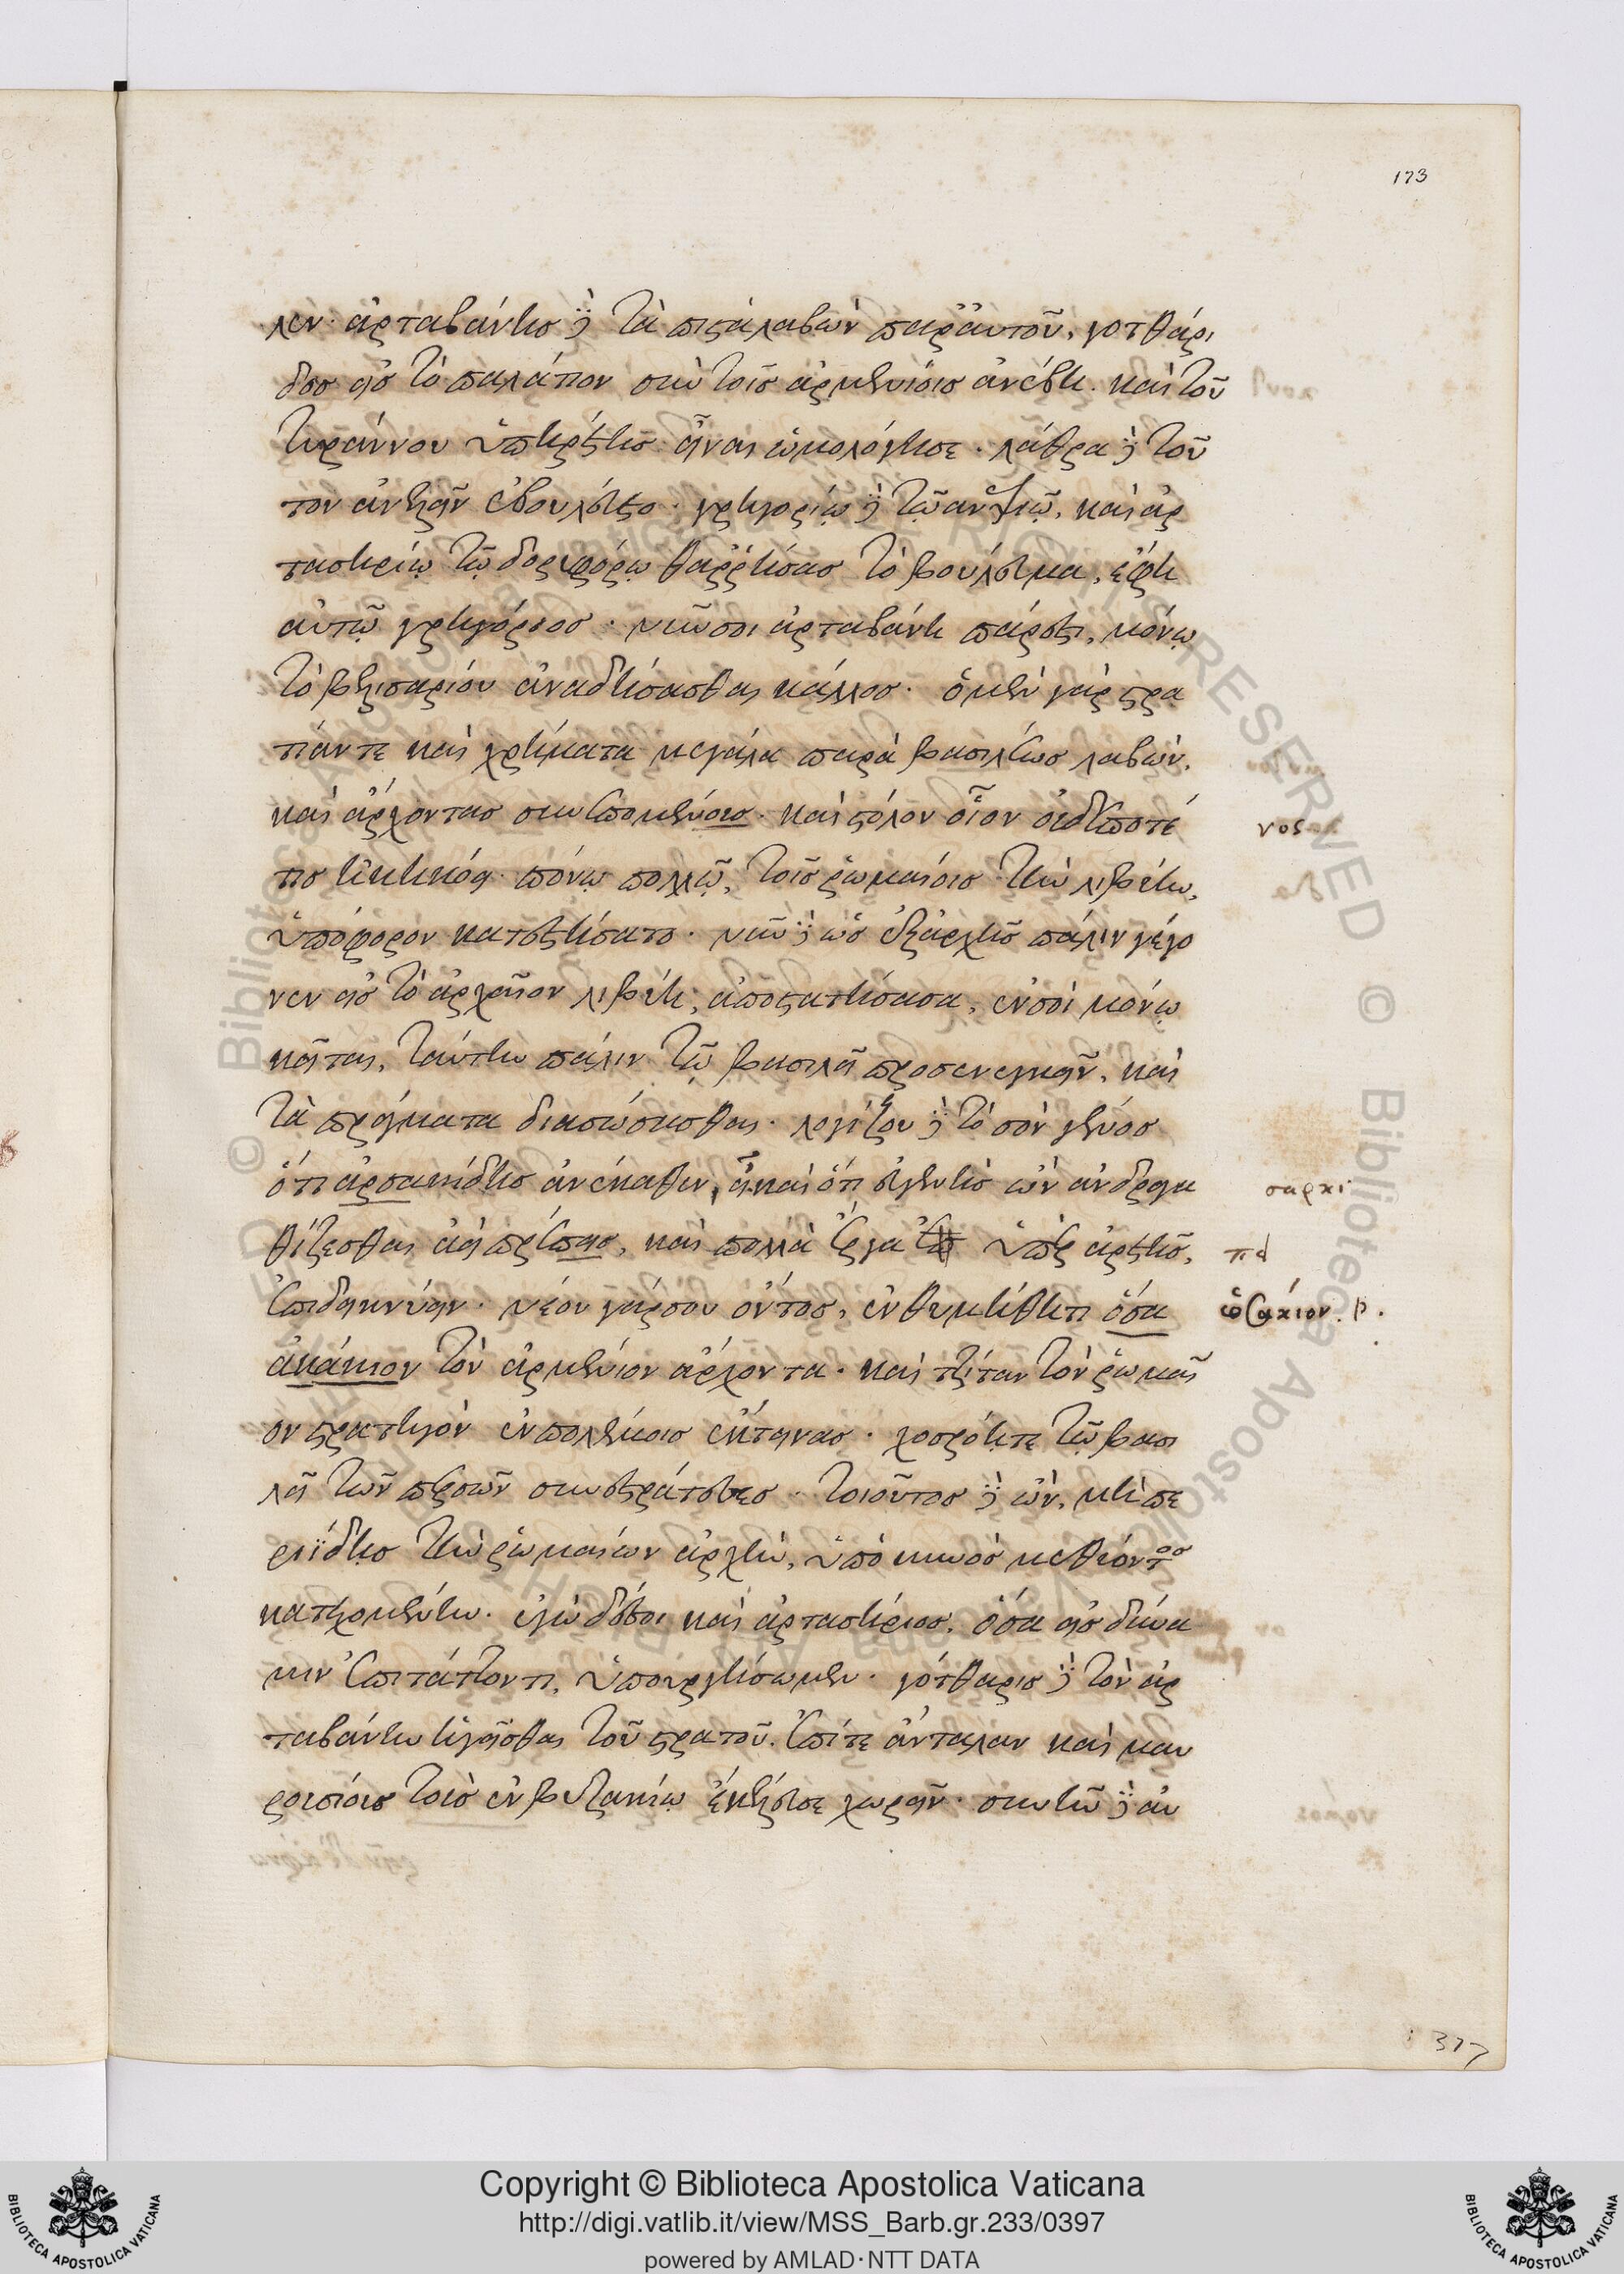 173
λεν· ἀρταβάνης δὲ τὰ πιστὰ λαβὼν παρ' αὐτοῦ, γοτθάρι
δος εἰς τὸ παλάτιον σὺν τοῖς ἀρμενίοις ἀνέβη. καὶ τοῦ
τυράννου ὑπηρέτης εἶναι ὡμολόγησε· λάθρα δὲ τοῦ
τον ἀνελεῖν ἐβουλεύετο· γρηγορίῳ δὲ τῷ ἀνεψιῷ, καὶ ἀρ
τασηρίῳ τῷ δορυφόρῳ θαρρήσας τὸ βούλευμα, ἔφη
αὐτῷ γρηγόριος· νῦν σοι ἀρταβάνη πάρεστι, μόνῳ
τὸ βελισαρίου ἀναδήσασθαι κάλλος· ὁ μὲν γὰρ στρα
τιάν τε καὶ χρήματα μεγάλα παρὰ βασιλέως λαβὼν,
καὶ ἄρχοντας συνεπομένοις· καὶ στόλον οἷον οὐδεπώποτέ
τις ἠκηκόει· πόνῳ πολλῷ, τοῖς ῥωμαίοις τὴν λιβύην,
ὑπόφορον κατεστήσατο· νῦν δὲ ὡς ἐξ ἀρχῆς πάλιν γέγο
νεν εἰς τὸ ἀρχαῖον λιβύη, ἀποστατήσασα, ἐν σοὶ μόνῳ
κεῖται, ταύτην πάλιν τῷ βασιλεῖ προσενεγκεῖν, καὶ
τὰ πράγματα διασώσασθαι· λογίζου δὲ τὸ σὸν γένος
ὅτι ἀρσακίδης ἀνέκαθεν, εἶ καὶ ὅτι εὐγενὴς ὢν ἀνδραγα
θίζεσθαι ἀεὶ πρέποις, καὶ πολλὰ ἔργα ὑπὲρ ἀρετῆς,
ἐπιδεικνύειν· νέου γάρ σου ὄντος, ἐνθυμήθητι ὅσα
ἀκάκιον τὸν ἀρμένιον ἄρχοντα· καὶ τζίταν τὸν ῥωμαῖ
ον στρατηγὸν ἐν πολέμοις ἔκτεινας· χοσρόῃ τε τῷ βασι
λεῖ τῶν περσῶν συνεστράτευες· τοιοῦτος δὲ ὢν, μὴ πε
ριΐδῃς τὴν ῥωμαίων ἀρχὴν, ὑπὸ κυνὸς μεθύοντος
κατεχομένην. ἐγὼ δέ σοι καὶ ἀρτασήριος, ὅσα εἰς δύνα
μιν ἐπιτάττοντι, ὑπουργήσωμεν· γότθαρις δὲ τὸν ἀρ
ταβάνην ἡγεῖσθαι τοῦ στρατοῦ. ἐπί τε ἀνταλαν καὶ μαυ
ρουσίοις τοῖς ἐν βυζακίῳ ἐκέλευσε χωρεῖν· σὺν τῷ δὲ αὐ
νος
σαρκι
πά
ὁ ζακιον. β.
377
Copyright © Biblioteca Apostolica Vaticana
http://digi.vatlib.it/view/MSS_Barb.gr.233/0397
powered by AMLAD·NTT DATA
BIBLIOTECA APOSTOLICA VATICANA
BIBLIOTECA APOSTOLICA VATICANA